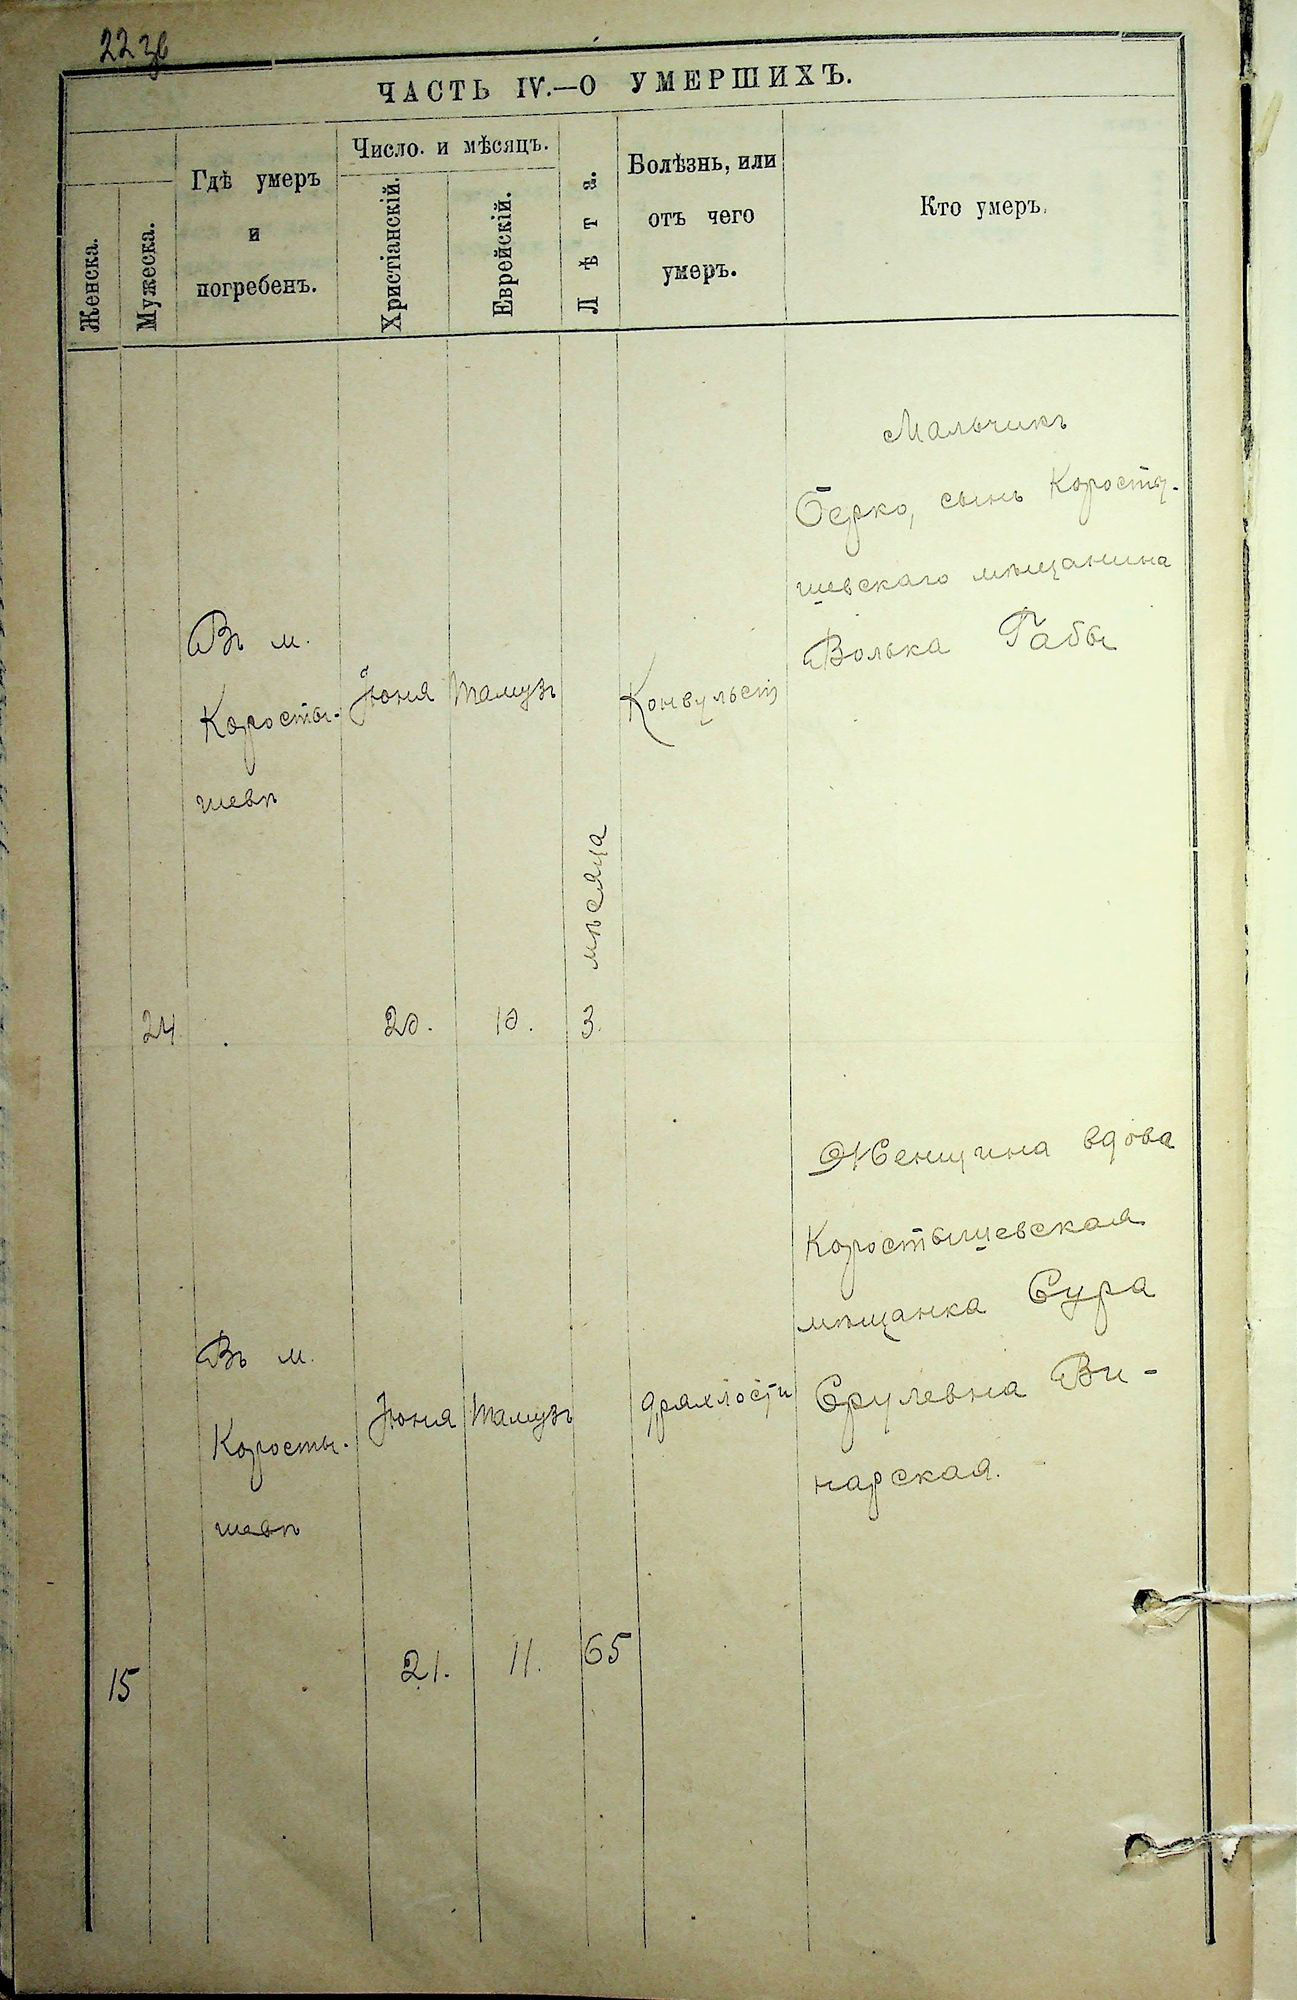 22 зв
ЧАСТЬ IV.—О УМЕРШИХЪ.
Женска.
Мужеска.
Гдѣ умеръ
и
погребенъ.
Число. и мѣсяцъ.
Христіанскій.
Еврейскій.
Лѣта.
Болѣзнь, или
отъ чего
умеръ.
Кто умеръ.
24
Въ м.
Коросты-
шевѣ
Іюня
20.
Тамузъ
10.
3 мѣсяца
Мальчикъ
Берко, сынъ Косты-
шевскаго мѣщанина
Волька Габы
15
Въ м.
Коросты-
шевѣ
Іюня
21.
Тамузъ
11.
65
дряхлости
Женщина вдова
Коростышевская
мѣщанка Сура
Срулевна Ви-
нарская.